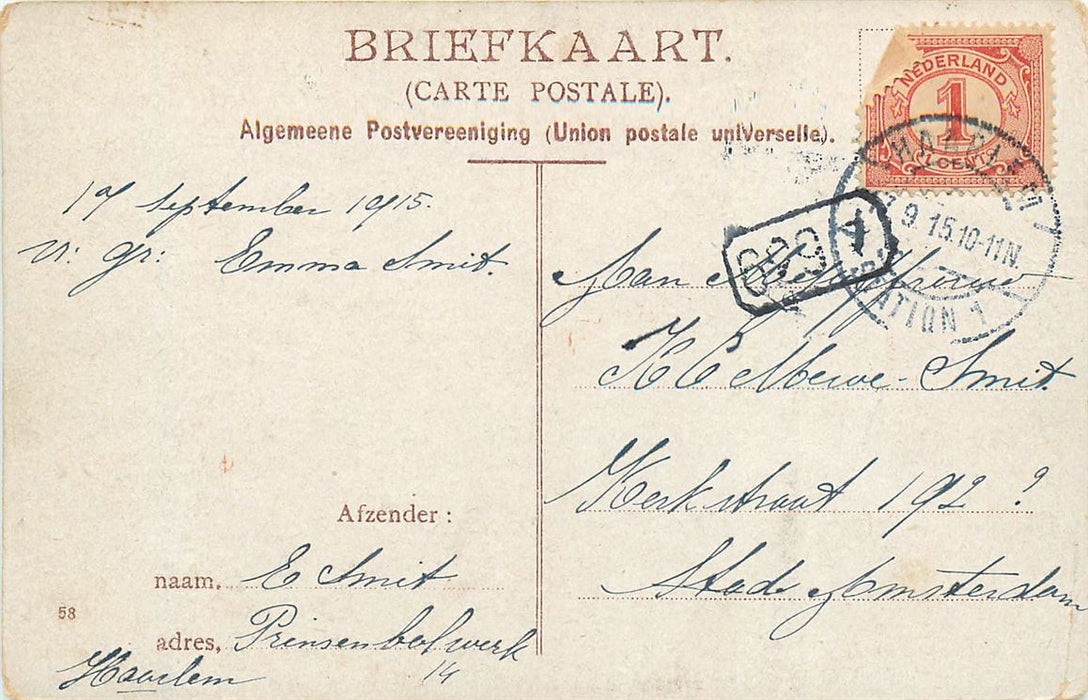 BRIEFKAART.
(CARTE POSTALE).
Algemeene Postvereeniging (Union postale universelle).
NEDERLAND
1
1 CENT
HAARLEM
9.15.10-11N.
STATION 1
17 September 1915.
v: gr: Emma Smit.
Aan Mejuffrouw
Mewe-Smit.
Kerkstraat 192 ?
Stad Amsterdam
Afzender:
naam, E Smit
58
adres, Prinsenbolwerk
14
Haarlem